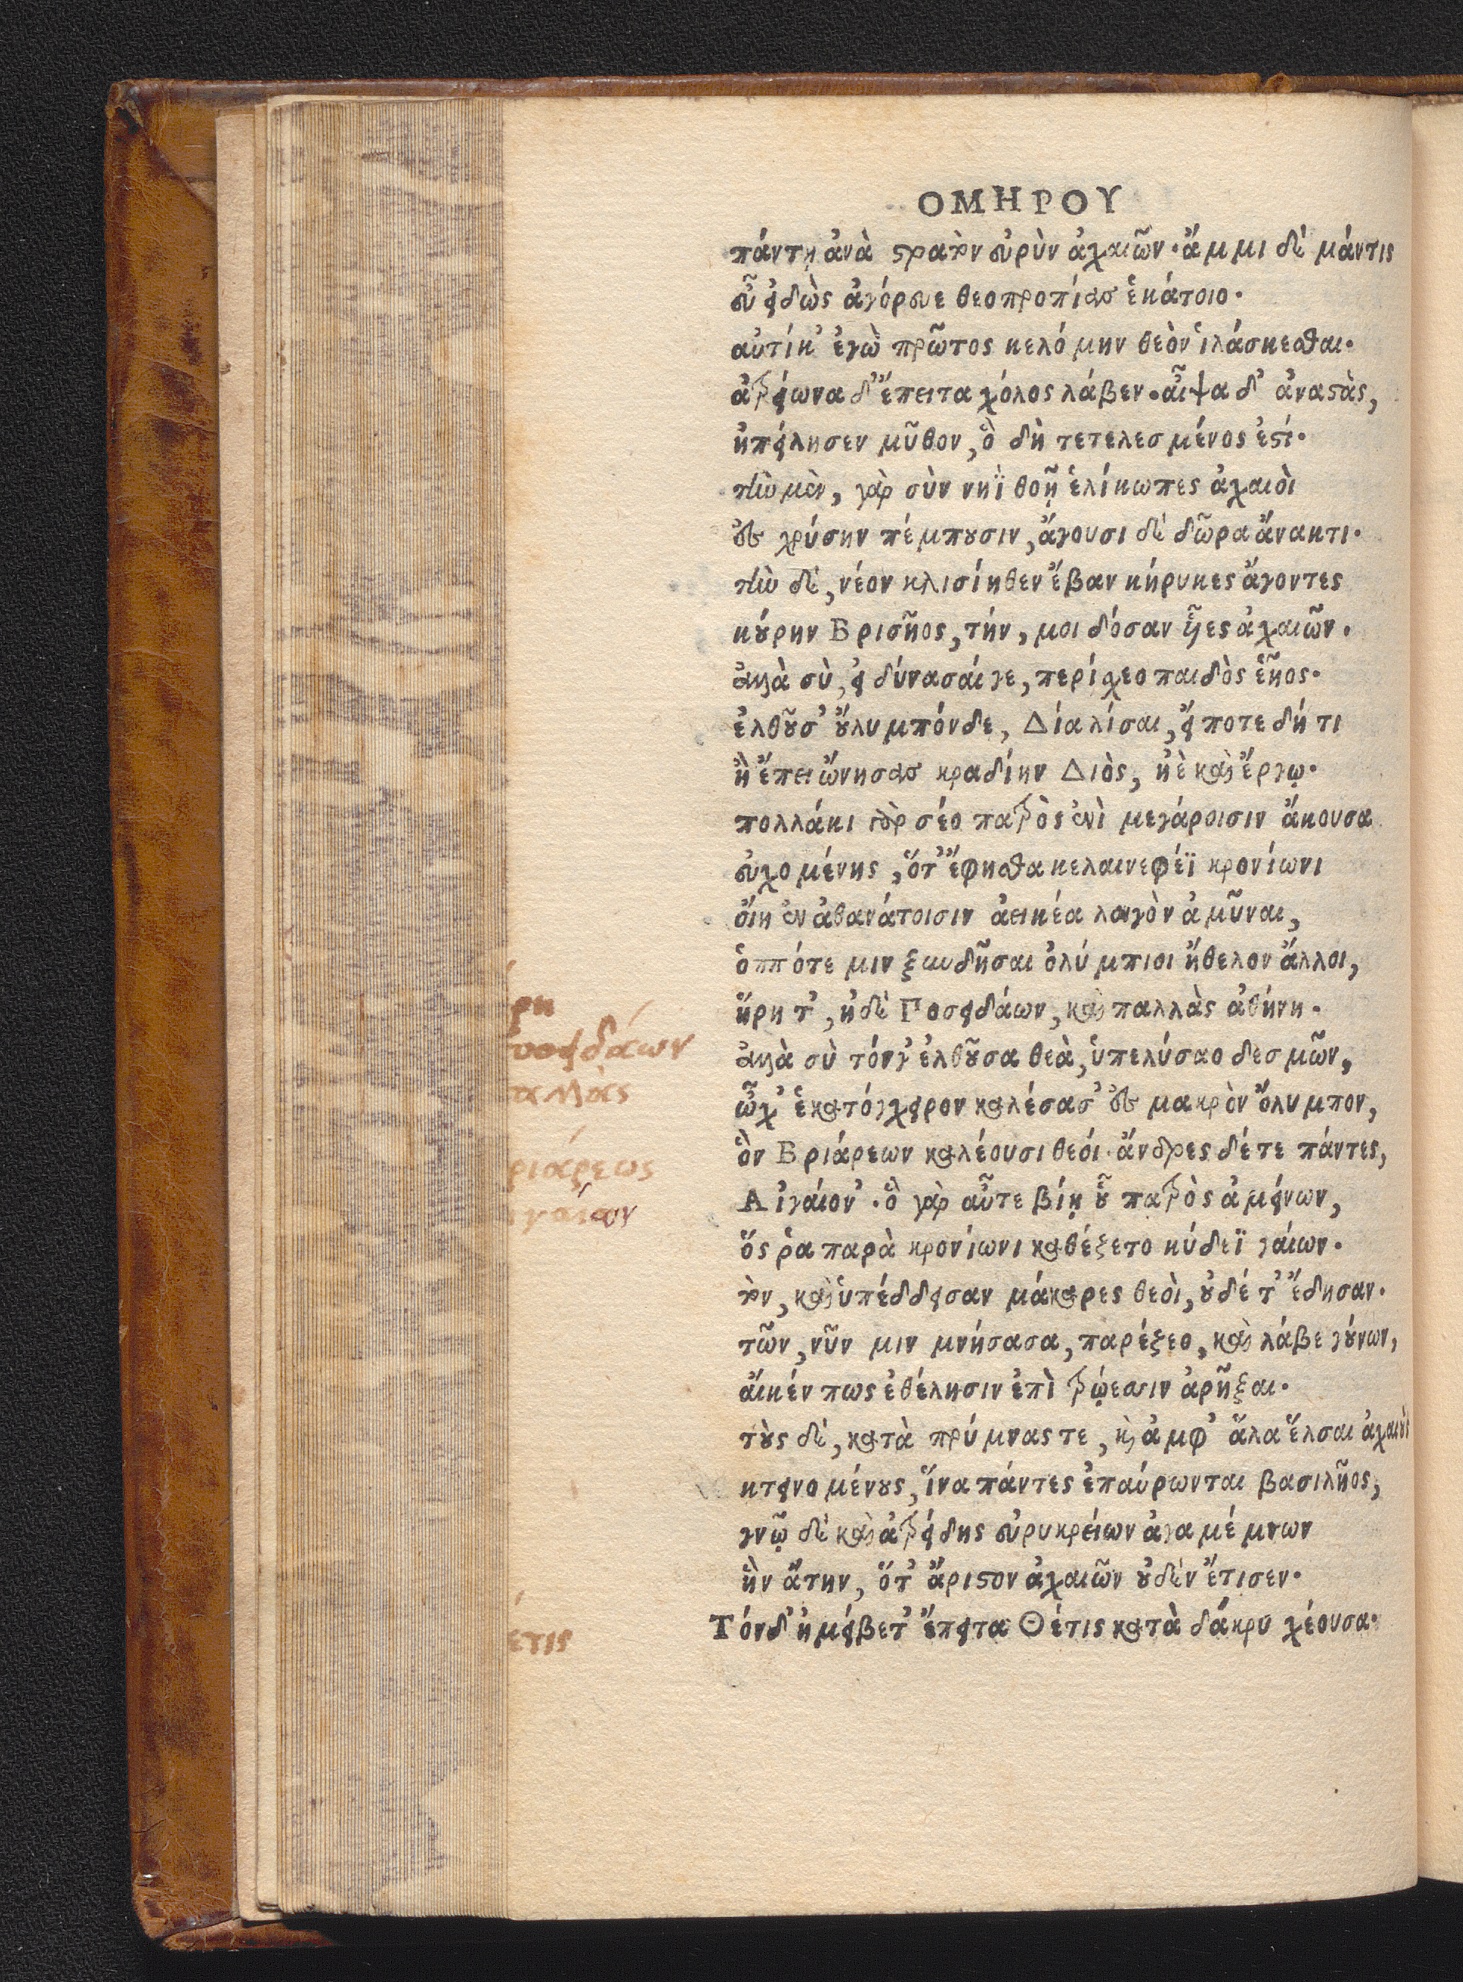 ΟΜΗΡΟΥ
πάντῃ ἀνὰ στρατὸν εὐρὺν ἀχαιῶν· ἄμμι δὲ μάντις
εὖ εἰδὼς ἀγόρευε θεοπροπίας ἑκάτοιο·
αὐτίκ' ἐγὼ πρῶτος κελόμην θεὸν ἱλάσκεσθαι·
ἀτρείωνα δ' ἔπειτα χόλος λάβεν· αἶψα δ' ἀναστὰς,
ἠπείλησεν μῦθον, ὃ δὴ τετελεσμένος ἐστί·
τὴν μὲν, γὰρ σὺν νηῒ θοῇ ἑλίκωπες ἀχαιοὶ
ἐς χρύσην πέμπουσιν, ἄγουσι δὲ δῶρα ἄνακτι·
τὴν δὲ, νέον κλισίηθεν ἔβαν κήρυκες ἄγοντες
κούρην Βρισῆος, τήν, μοι δόσαν υἷες ἀχαιῶν·
ἀλλὰ σὺ, εἰ δύνασαί γε, περίσχεο παιδὸς ἑῆος·
ἐλθοῦσ' οὔλυμπόνδε, Δία λίσαι, εἴ ποτε δή τι
ἢ ἔπει ὤνησας κραδίην Διὸς, ἠὲ καὶ ἔργῳ·
πολλάκι γὰρ σέο πατρὸς ἐνὶ μεγάροισιν ἄκουσα
εὐχομένης, ὅτ' ἔφησθα κελαινεφέϊ κρονίωνι
οἴη ἐν ἀθανάτοισιν ἀεικέα λοιγὸν ἀμῦναι,
ὁππότε μιν ξυνδῆσαι ὀλύμπιοι ἤθελον ἄλλοι,
ἥρη τ', ἠδὲ Ποσειδάων, καὶ παλλὰς ἀθήνη·
ἀλλὰ σὺ τόνγ' ἐλθοῦσα θεὰ, ὑπελύσαο δεσμῶν,
ὦχ' ἑκατόγχειρον καλέσασ' ἐς μακρὸν ὄλυμπον,
ὃν Βριάρεων καλέουσι θεοί· ἄνδρες δέ τε πάντες,
Αἰγαίον'· ὃ γὰρ αὖτε βίῃ οὗ πατρὸς ἀμείνων,
ὅς ῥα παρὰ κρονίωνι καθέζετο κύδεϊ γαίων·
τὸν, καὶ ὑπέδδεισαν μάκαρες θεοὶ, οὐδέ τ' ἔδησαν·
τῶν, νῦν μιν μνήσασα, παρέζεο, καὶ λάβε γούνων,
αἴ κέν πως ἐθέλησιν ἐπὶ τρώεσσιν ἀρῆξαι·
τοὺς δὲ, κατὰ πρύμνας τε, καὶ ἀμφ' ἅλα ἔλσαι ἀχαιοὺς
κτεινομένους, ἵνα πάντες ἐπαύρωνται βασιλῆος,
γνῷ δὲ καὶ ἀτρείδης εὐρυκρείων ἀγαμέμνων
ἣν ἄτην, ὅτ' ἄριστον ἀχαιῶν οὐδὲν ἔτισεν·
Τόνδ' ἠμείβετ' ἔπειτα Θέτις κατὰ δάκρυ χέουσα·
ρη
οσειδάων
αλλὰς
ριάρεως
ιγαίων
έτις